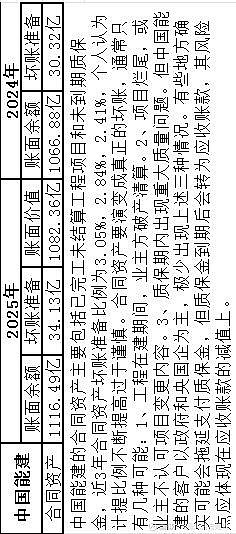 中国能建 2025年 2024年
账面余额 坏账准备 账面价值 账面余额 坏账准备
合同资产 1116.49亿 34.13亿 1082.36亿 1066.88亿 30.32亿
中国能建的合同资产主要包括已完工未结算工程项目和未到期质保
金，近3年合同资产坏账准备比例为3.05%，2.84%，2.41%，个人认为
计提比例不断提高过于谨慎。合同资产要演变成真正的坏账，通常只
有几种可能：1、工程在建期间，业主方破产清算。2、项目烂尾，或
业主不认可项目变更内容。3、质保期内出现重大质量问题。但中国能
建的客户以政府和央国企为主，极少出现上述三种情况。有些地方确
实可能会拖延支付质保金，但质保金到期后会转为应收账款，其风险
点应体现在应收账款的减值上。